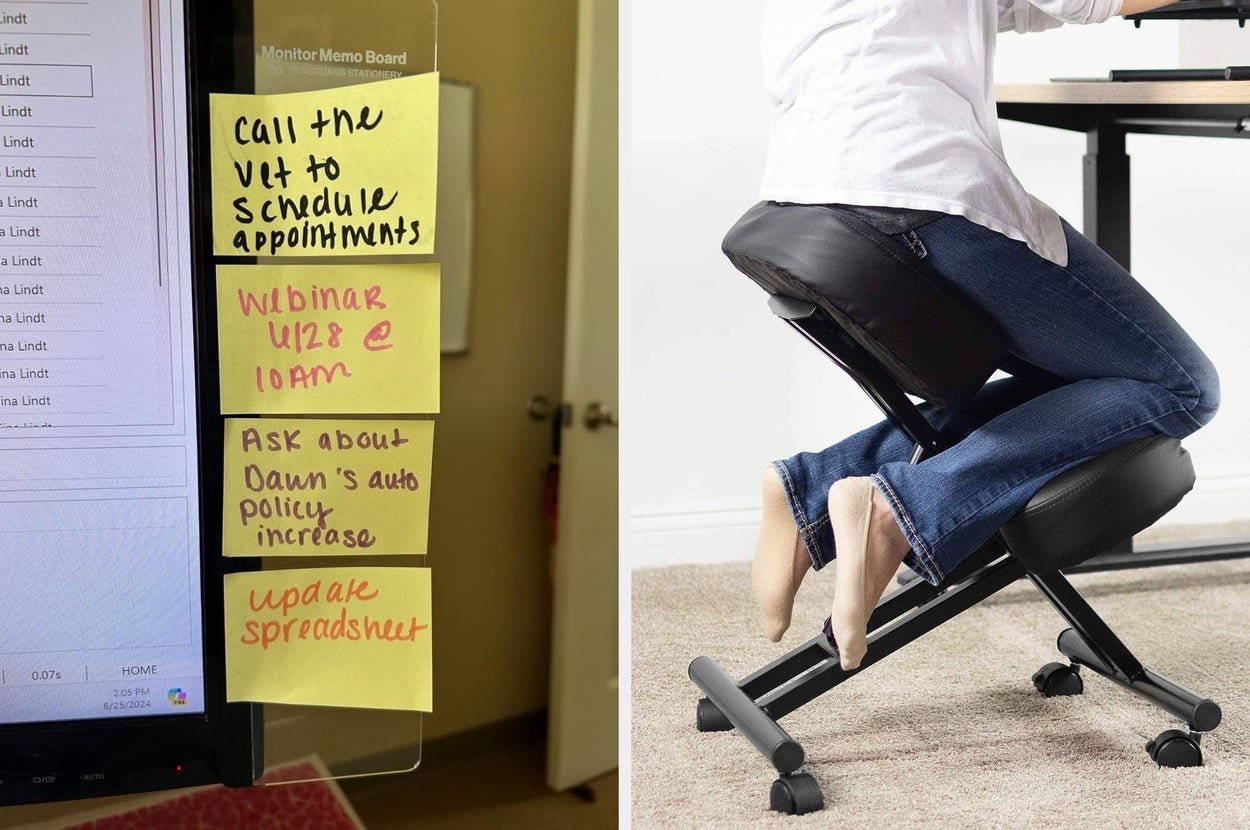 Lindt
Lindt
Lindt
Lindt
Lindt
Lindt
a Lindt
a Lindt
a Lindt
na Lindt
na Lindt
na Lindt
ina Lindt
ina Lindt
0.07s
HOME
2:05 PM
6/25/2024
PRE
AUTO
Monitor Memo Board
TENGGUANG STATIONERY
Call the
vet to
schedule
appointments
Webinar
6/28 @
10AM
Ask about
Dawn's auto
policy
increase
update
spreadsheet